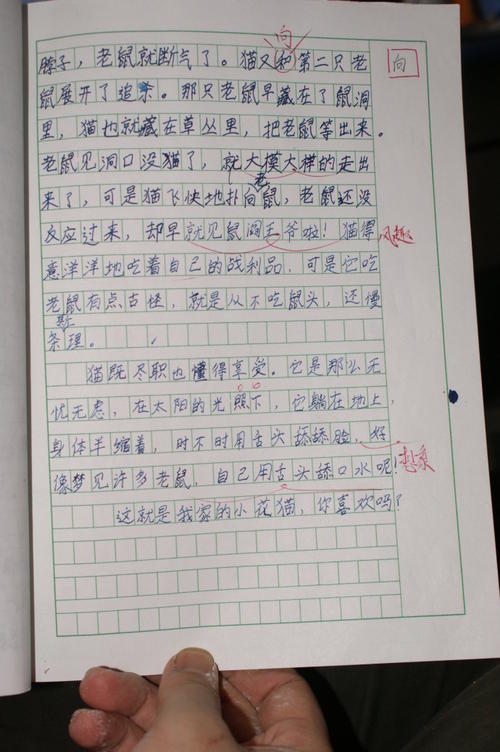 向
脖子，老鼠就断气了。猫又和第二只老 向
鼠展开了追杀。那只老鼠早藏在了鼠洞
里，猫也就藏在草丛里，把老鼠等出来。
老鼠见洞口没猫了，就大模大样的走出
老
来了，可是猫飞快地扑向鼠，老鼠还没
反应过来，却早就见鼠阎王爷啦！猫得 风趣
意洋洋地吃着自己的战利品，可是它吃
老鼠有点古怪，就是从不吃鼠头，还慢
条理。
猫既尽职也懂得享受。它是那么无
忧无虑，在太阳的光照下，它躺在地上，
身体半缩着，时不时用舌头舔舔脸，好
像梦见许多老鼠，自己用舌头舔口水呢！ 想象
这就是我家的小花猫，你喜欢吗？